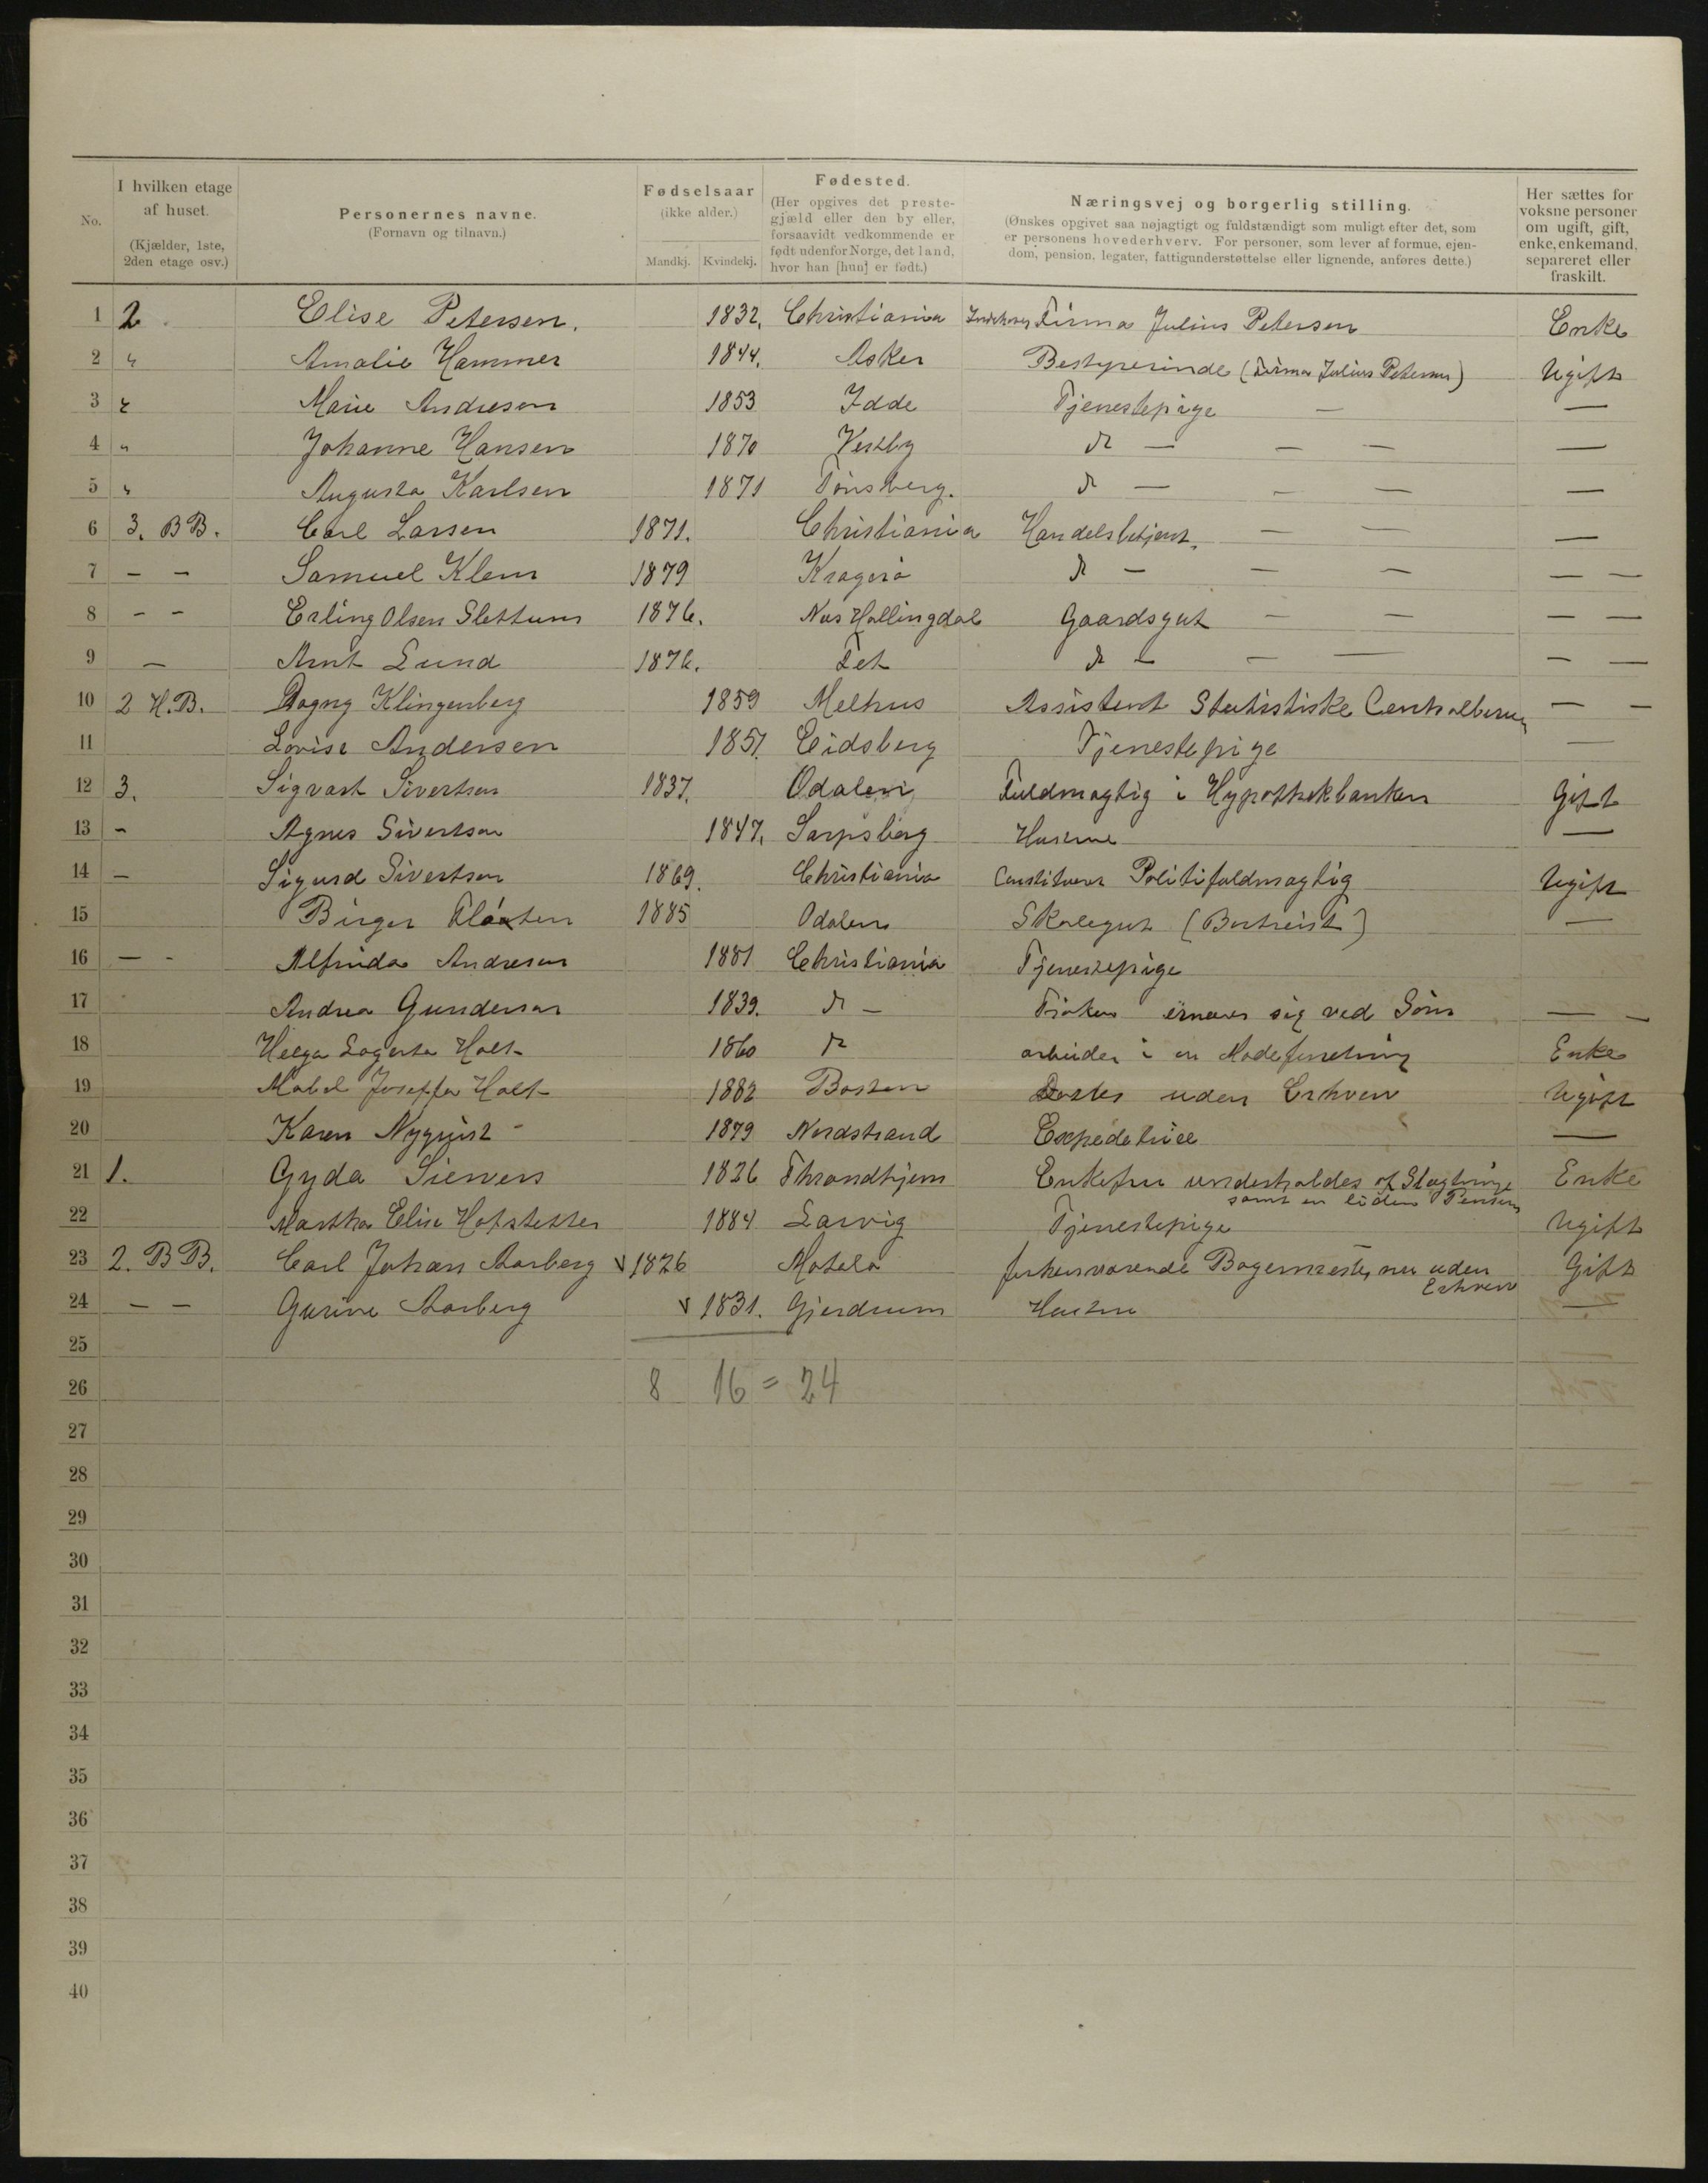 No. | I hvilken etage af huset. (Kjælder, 1ste, 2den etage osv.) | Personernes navne. (Fornavn og tilnavn.) | Fødselsaar (ikke alder.) Mandkj. Kvindekj. | Fødested. (Her opgives det prestegjæld eller den by eller, forsaavidt vedkommende er født udenfor Norge, det land, hvor han [hun] er født.) | Næringsvej og borgerlig stilling. (Ønskes opgivet saa nøjagtigt og fuldstændigt som muligt efter det, som er personens hovederhverv. For personer, som lever af formue, ejendom, pension, legater, fattigunderstøttelse eller lignende, anføres dette.) | Her sættes for voksne personer om ugift, gift, enke, enkemand, separeret eller fraskilt.
1 2. Elise Petersen. 1832. Christiania Indehaver Firma Julius Petersen Enke
2 " Amalie Hammer 1844. Asker Bestyrerinde (Firma Julius Petersen) Ugift
3 " Marie Andresen 1853 Idde Tjenestepige — —
4 " Johanne Hansen 1870 Vestby do — — — —
5 " Augusta Karlsen 1871 Tønsberg. do — — — —
6 3. BB. Carl Larsen 1871. Christiania Handelsbetjent. — — —
7 — — Samuel Klem 1879 Kragerø do — — — — —
8 — — Erling Olsen Slettum 1876. Nes Hallingdal Gaardsgut — — — —
9 — Arnt Lund 1876. Fet do — — — — —
10 2 H.B. Dagny Klingenberg 1859 Melhus Assistent Statistiske Centralbureau — —
11 Lovise Andersen 1857. Eidsberg Tjenestepige —
12 3. Sigvart Sivertsen 1837. Odalen Fuldmægtig i Hypothekbanken Gift
13 - Agnes Sivertsen 1847. Sarpsborg Hustru —
14 — Sigurd Sivertsen 1869. Christiania Constitueret Politifuldmægtig Ugift
15 Birger 1885 Odalen Skolegut (Bortreist) —
16 — - Alfrida Andresen 1881 Christiania Tjenestepige
17 Andrea Gundersen 1839. do — Frøken ernærer sig ved Søm — —
18 Helga Lagerta Holt 1860 do arbeider i en Modeforretning Enke
19 Mabel Joseffa Holt 1882 Boston Datter uden Erhverv Ugift
20 Karen Nyquist 1879 Nordstrand Expeditrice —
21 1. Gyda Sievers 1826 Throndhjem Enkefru underholdes af Slægtninge Enke
samt en liden Pension
22 Martha Elise Hofstetter 1884 Larvig Tjenestepige Ugift
23 2. BB. Carl Johan Aarberg v 1826 Motala forhenværende Bagermester, nu uden Gift
Erhverv
24 — — Gurine Aarberg v 1831. Gjerdrum Hustru —
25
26 8 16 = 24
27
28
29
30
31
32
33
34
35
36
37
38
39
40